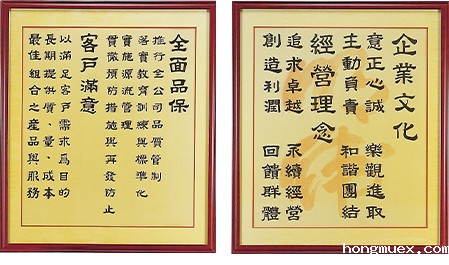 企業文化
意正心誠 樂觀進取
主動負責 和諧團結
經營理念
追求卓越 永續經營
創造利潤 回饋群體
全面品保
推行全公司品質管制
落實教育訓練與標準化
實施源流管理
貫徹預防措施與再發防止
客戶滿意
以滿足客戶需求為目的
長期提供質、量、成本
最佳組合之產品與服務
hongmuex.com